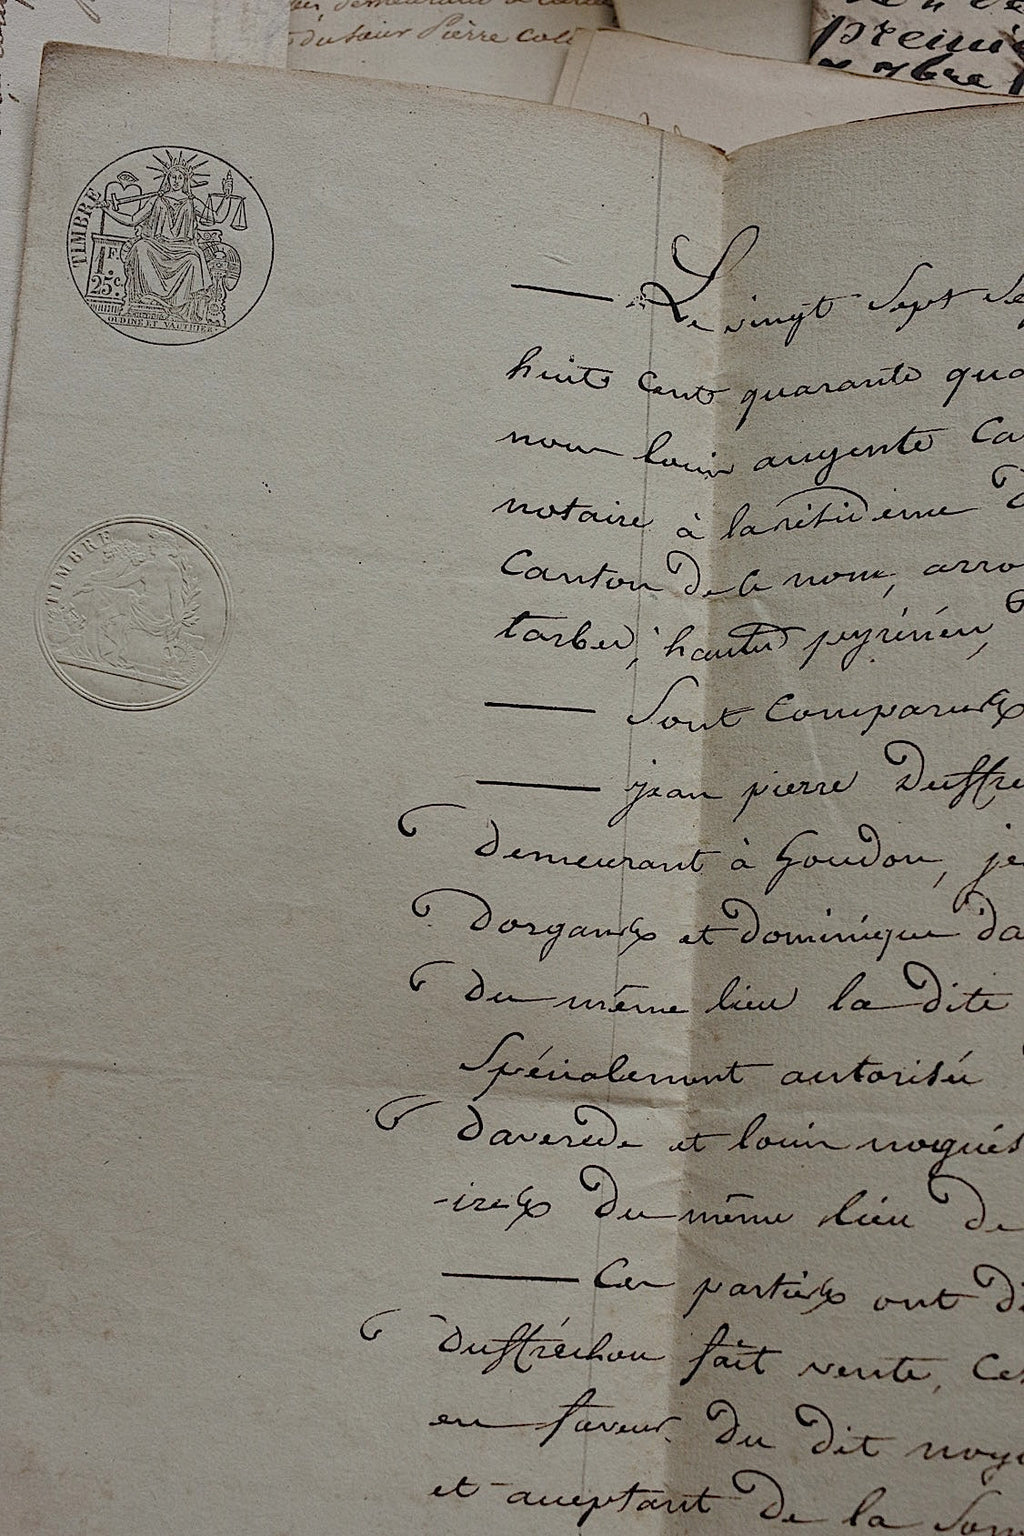 demeurant à
du sieur Pierre
TIMBRE
1 F.
25 c.
OUDINE ET VAUTHIER
TIMBRE
Le vingt Sept Se
huit cent quarante qua
nous louis auguste Ca
notaire à la résidence D
Canton De ce nom, arro
tarbes, hautes pyrénées,
Sont Comparus
jean pierre Dustre
Demeurant à Goudon, je
Dorgans et dominique da
Du même lieu la Dite
Spécialement autorisée
Daverede et louis nogués
-ires Du même lieu De
Ces parties ont Di
Dustréchou fait vente, Ces
en faveur Du Dit nogu
et acceptant De la Som